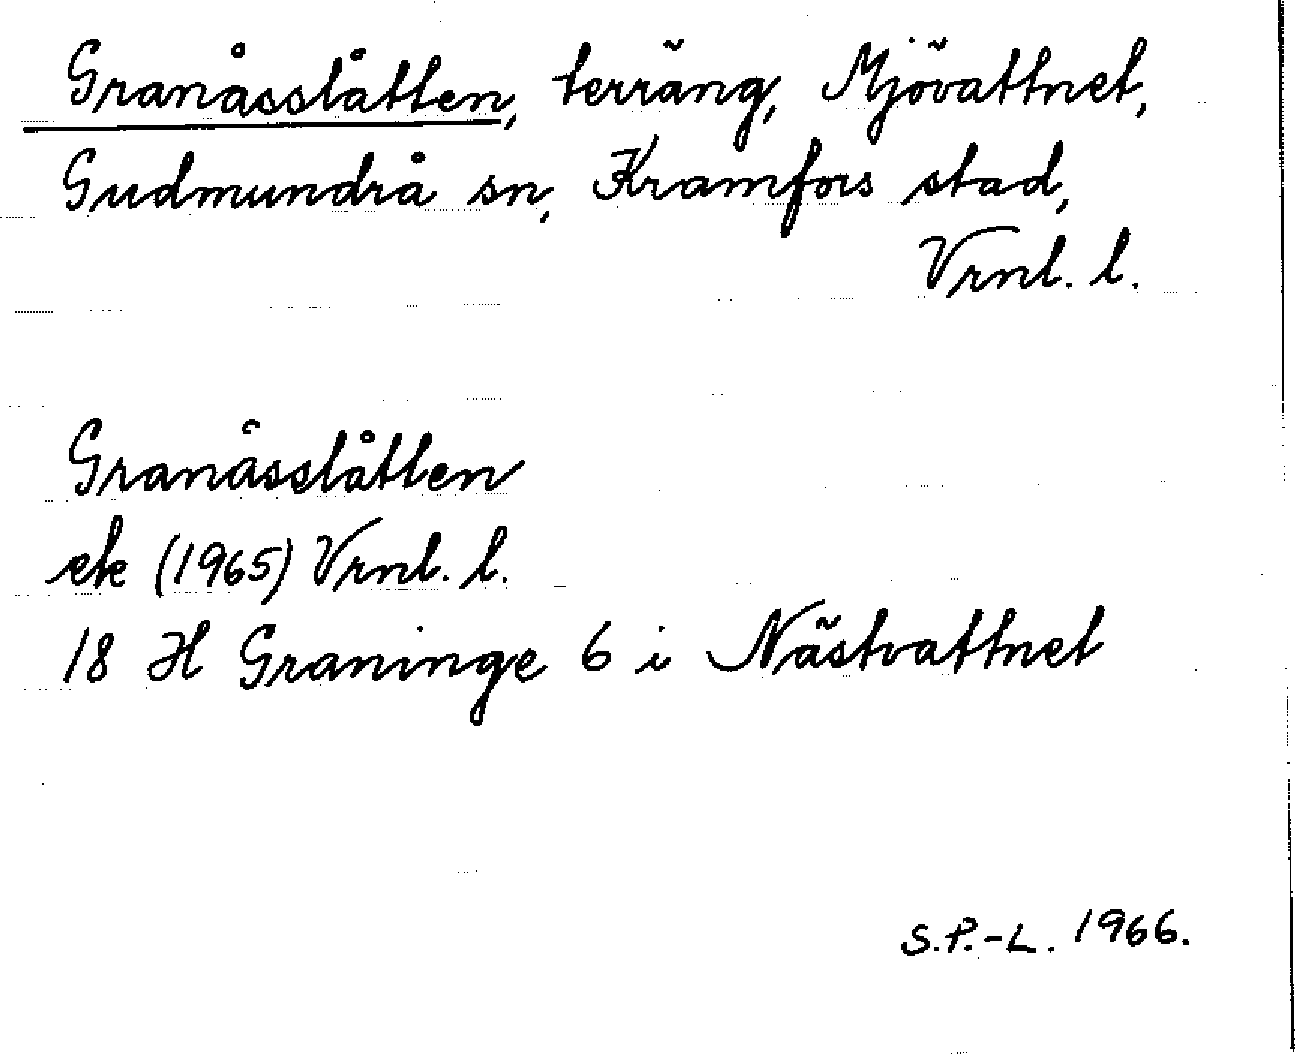 Granåsslåtten, terräng, Mjövattnet,
Gudmundrå sn, Kramfors stad,
Vrnl. l.
Granåsslåtten
ek (1965) Vrnl. l.
18 H Graninge 6 i Nästvattnet
S.P.-L. 1966.